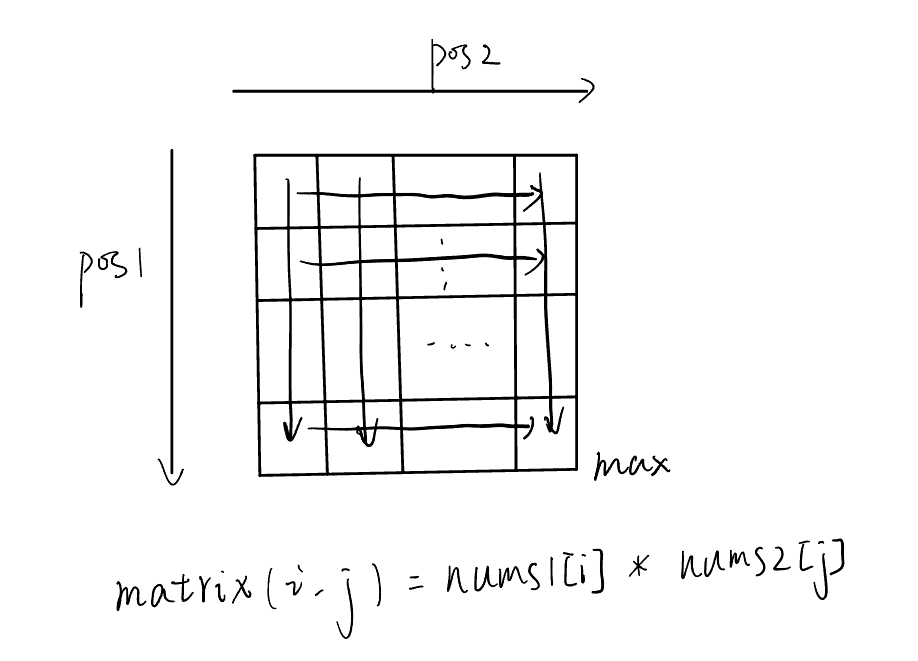 pos2
pos1
max
matrix(i,j) = nums1[i] * nums2[j]